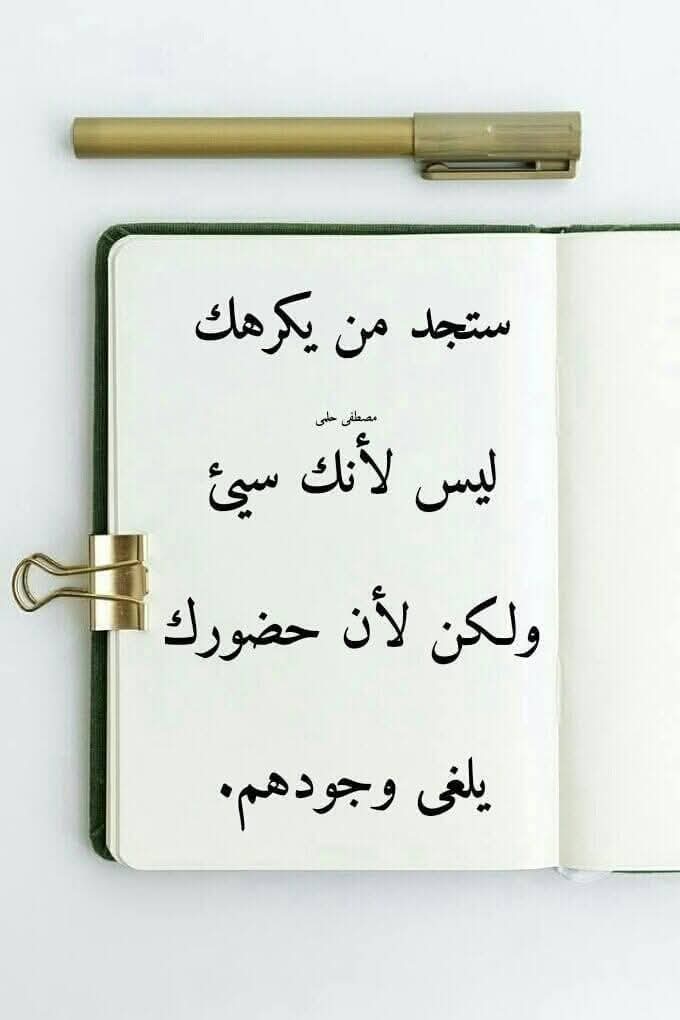 ستجد من يكرهك
مصطفى حلمى
ليس لأنك سيئ
ولكن لأن حضورك
يلغى وجودهم.